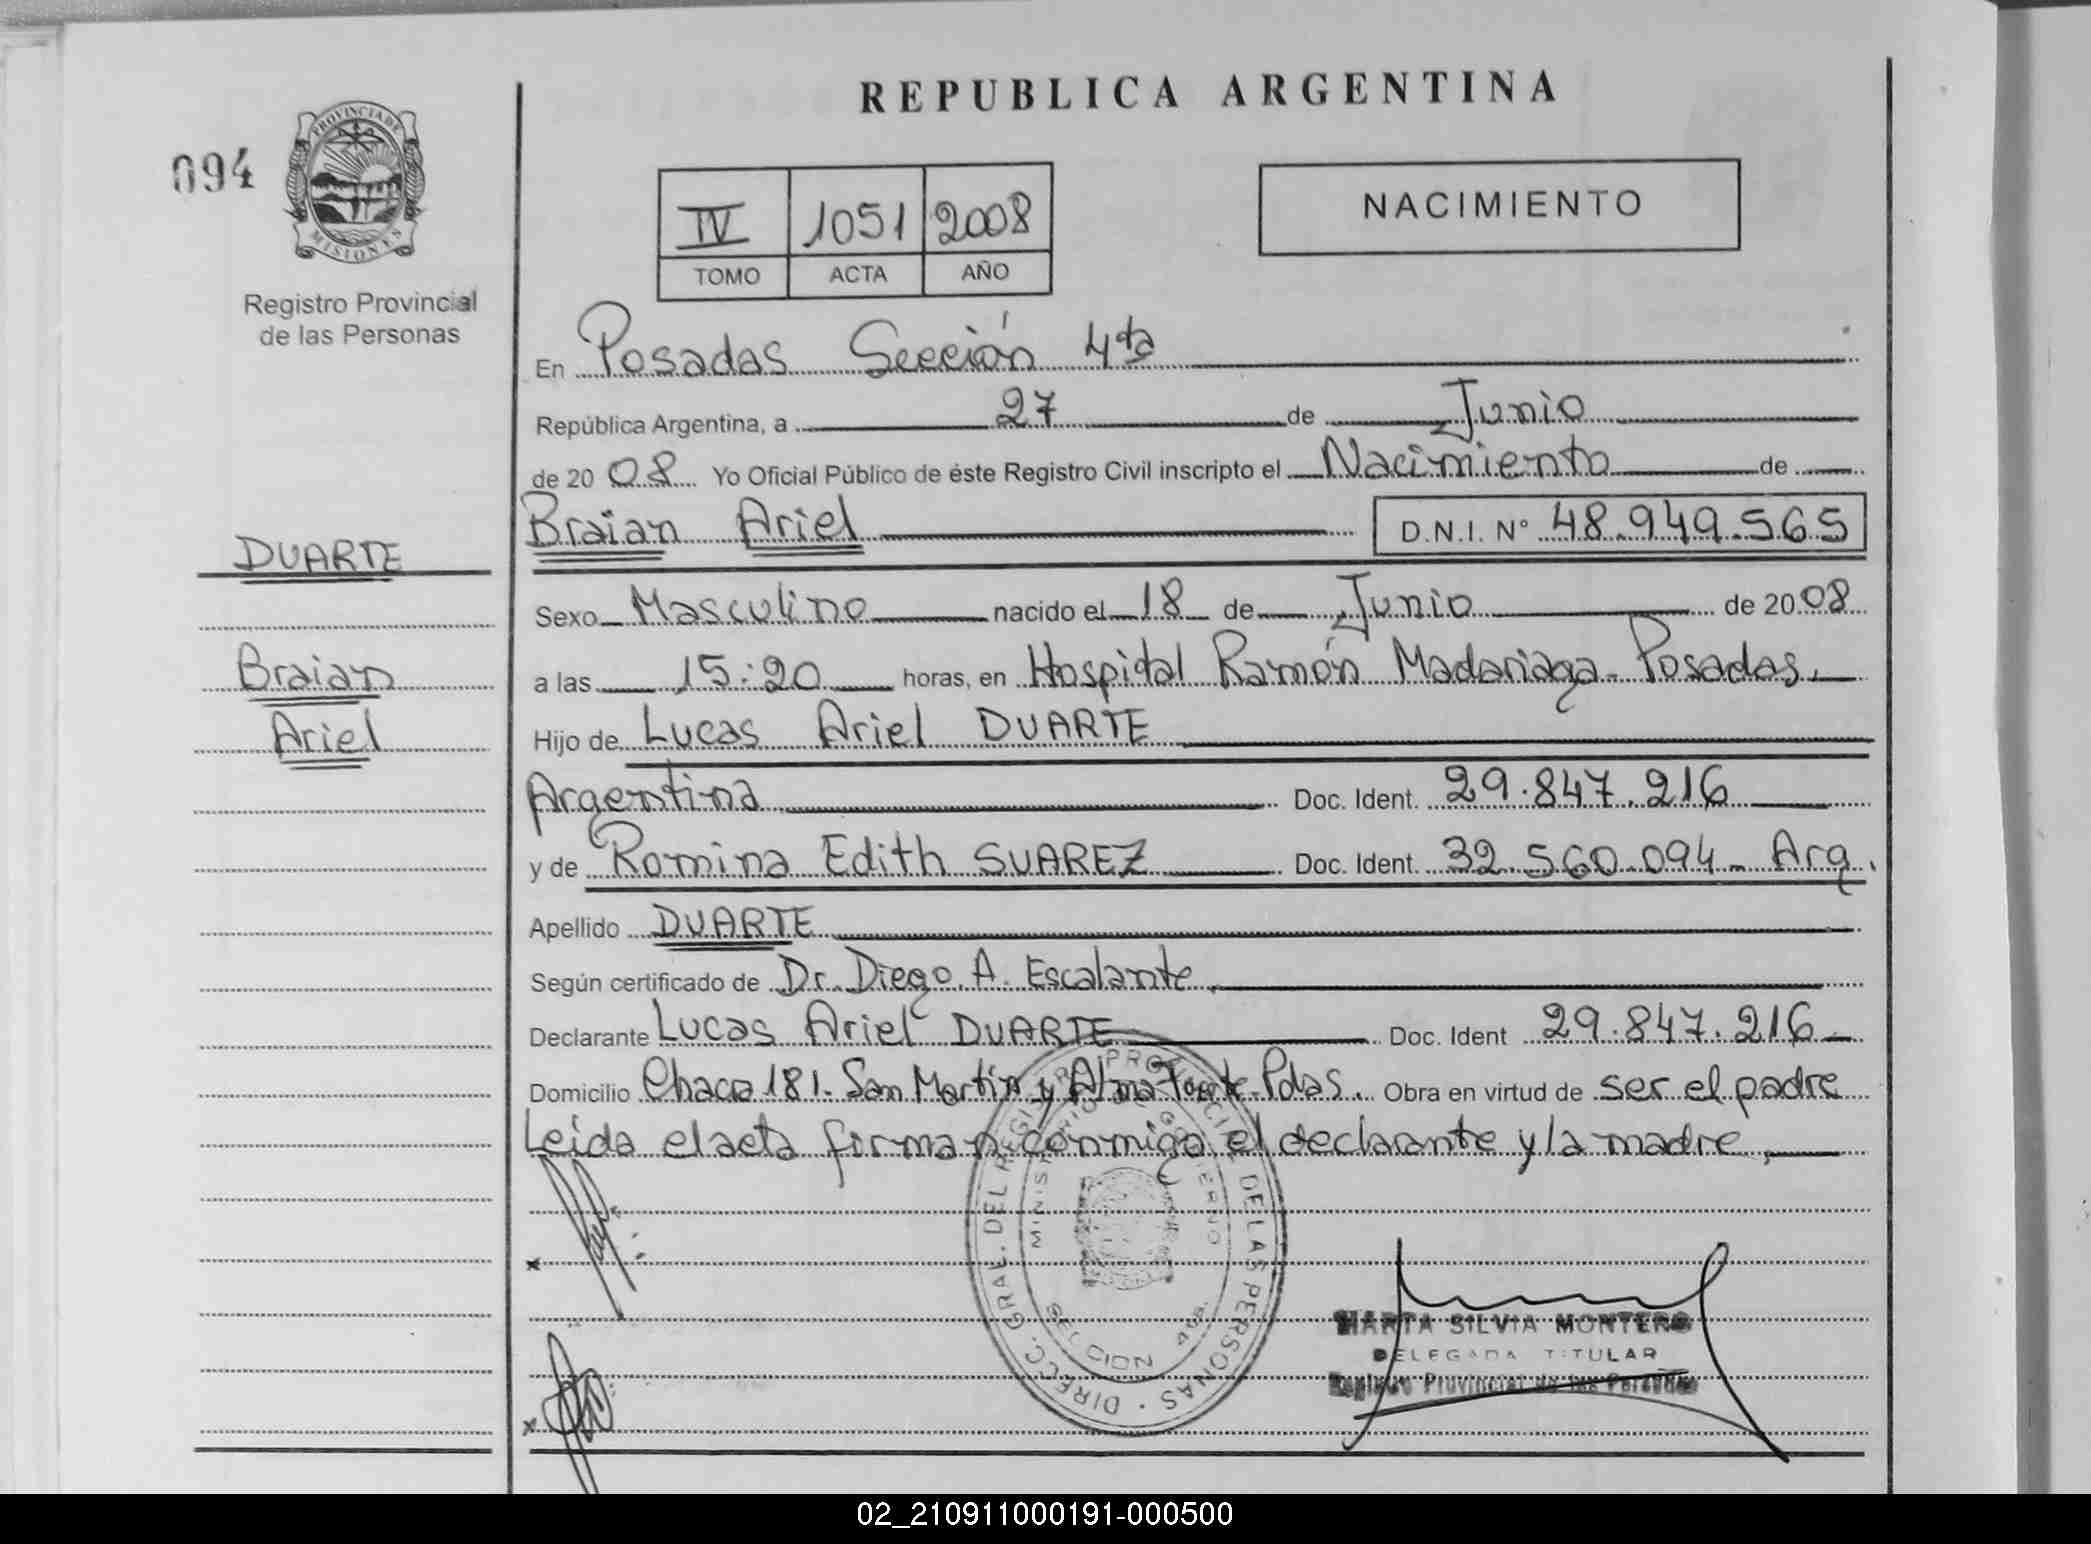 REPUBLICA ARGENTINA
094
PROVINCIA DE
MISIONES
Registro Provincial
de las Personas
IV 1051 2008
TOMO ACTA AÑO
NACIMIENTO
En Posadas Sección 4ta
República Argentina, a 27 de Junio
de 2008 Yo Oficial Público de éste Registro Civil inscripto el Nacimiento de
Braian Ariel D.N.I. N° 48.949.565
DUARTE
Braian
Ariel
Sexo Masculino nacido el 18 de Junio de 2008
a las 15:20 horas, en Hospital Ramón Madariaga - Posadas,
Hijo de Lucas Ariel DUARTE
Argentina Doc. Ident. 29.847.216
y de Romina Edith SUAREZ Doc. Ident. 32.560.094 - Arg.
Apellido DUARTE
Según certificado de Dr. Diego A. Escalante,
Declarante Lucas Ariel DUARTE Doc. Ident 29.847.216
Domicilio Chacra 181. San Martín y Alma Fuerte - Pdas. Obra en virtud de ser el padre
Leida el acta firman conmigo el declarante y la madre,
DIRECC. GRAL. DEL REGISTRO PROVINCIAL DE LAS PERSONAS
MINISTERIO DE GOBIERNO
MARTA SILVIA MONTERO
DELEGADA TITULAR
Registro Provincial de las Personas
02_210911000191-000500